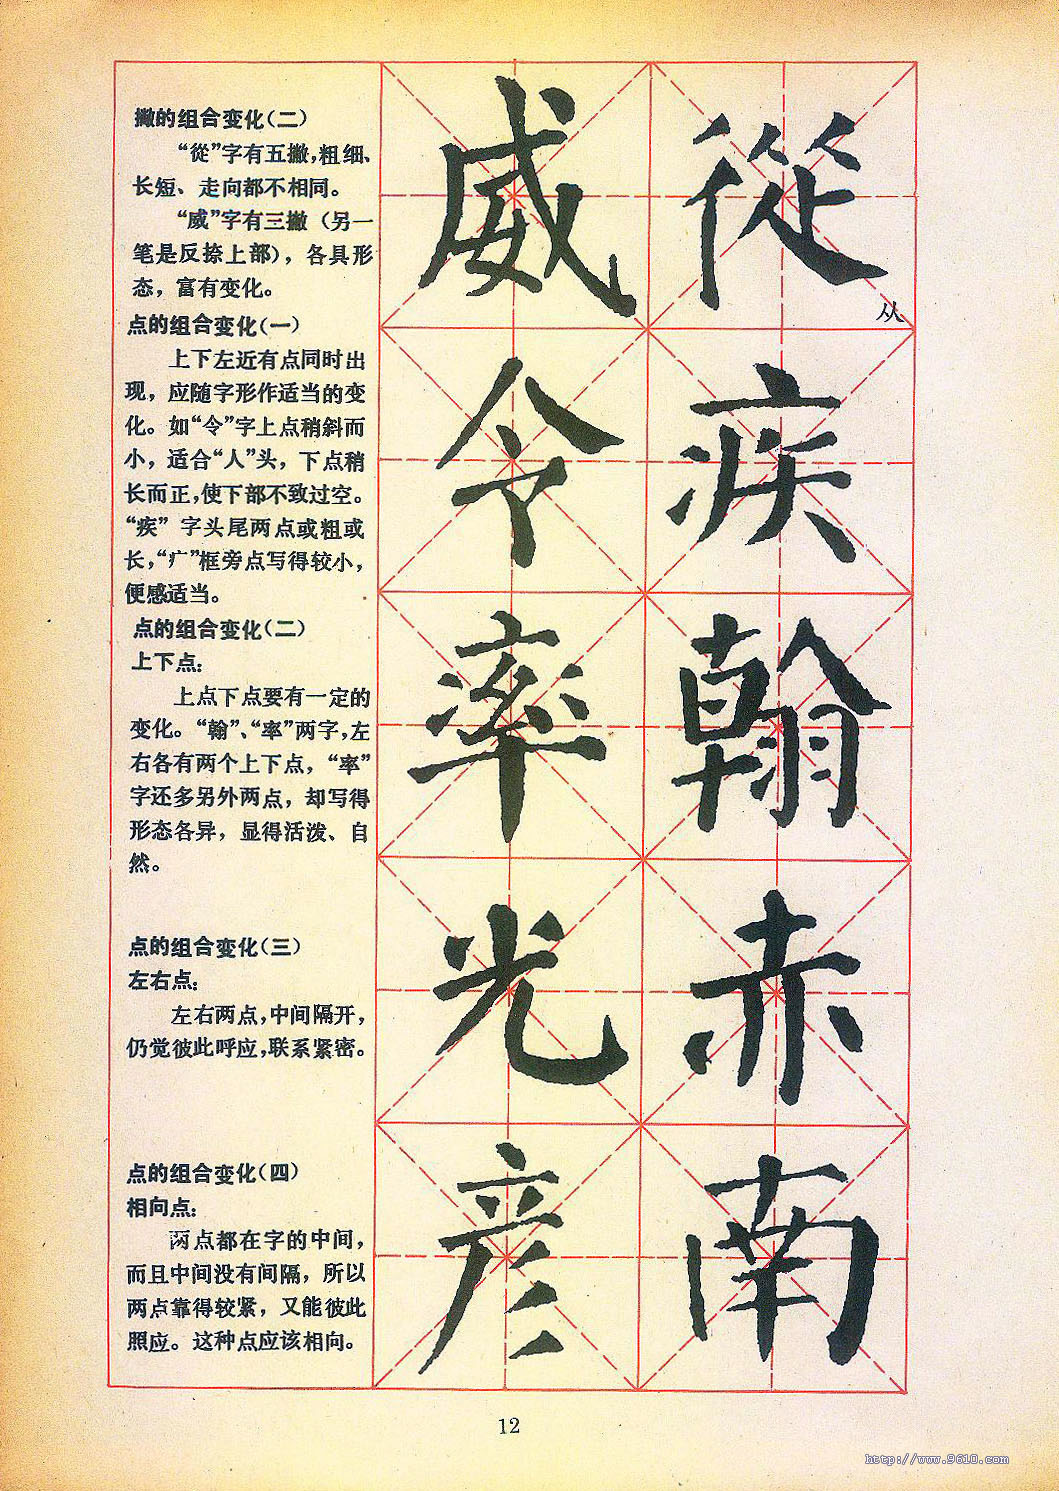 撇的组合变化(二)
“從”字有五撇,粗细、
长短、走向都不相同。
“威”字有三撇(另一
笔是反捺上部),各具形
态,富有变化。
点的组合变化(一)
上下左近有点同时出
现,应随字形作适当的变
化。如“令”字上点稍斜而
小,适合“人”头,下点稍
长而正,使下部不致过空。
“疾”字头尾两点或粗或
长,“疒”框旁点写得较小,
便感适当。
点的组合变化(二)
上下点:
上点下点要有一定的
变化。“翰”、“率”两字,左
右各有两个上下点,“率”
字还多另外两点,却写得
形态各异,显得活泼、自
然。
点的组合变化(三)
左右点:
左右两点,中间隔开,
仍觉彼此呼应,联系紧密。
点的组合变化(四)
相向点:
两点都在字的中间,
而且中间没有间隔,所以
两点靠得较紧,又能彼此
照应。这种点应该相向。
威 從
从
令 疾
率 翰
光 赤
彦 南
12
http://www.9610.com